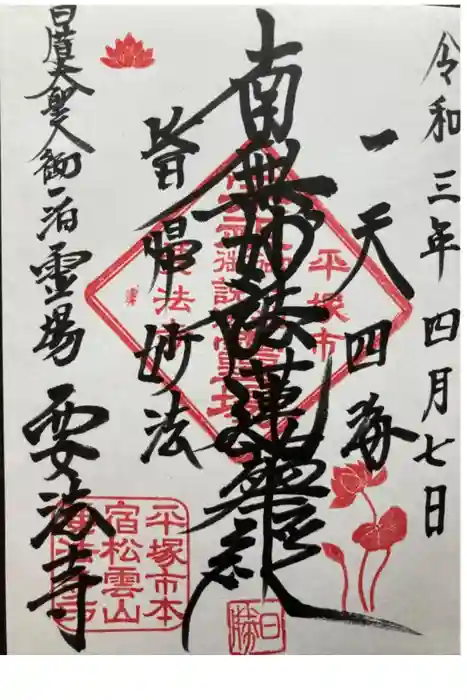 令和三年四月七日
一天四海
南無妙法蓮華経
皆帰妙法
日蓮大聖人御一泊霊場
要法寺
平塚市
平塚市本
宿松雲山
要法寺
日